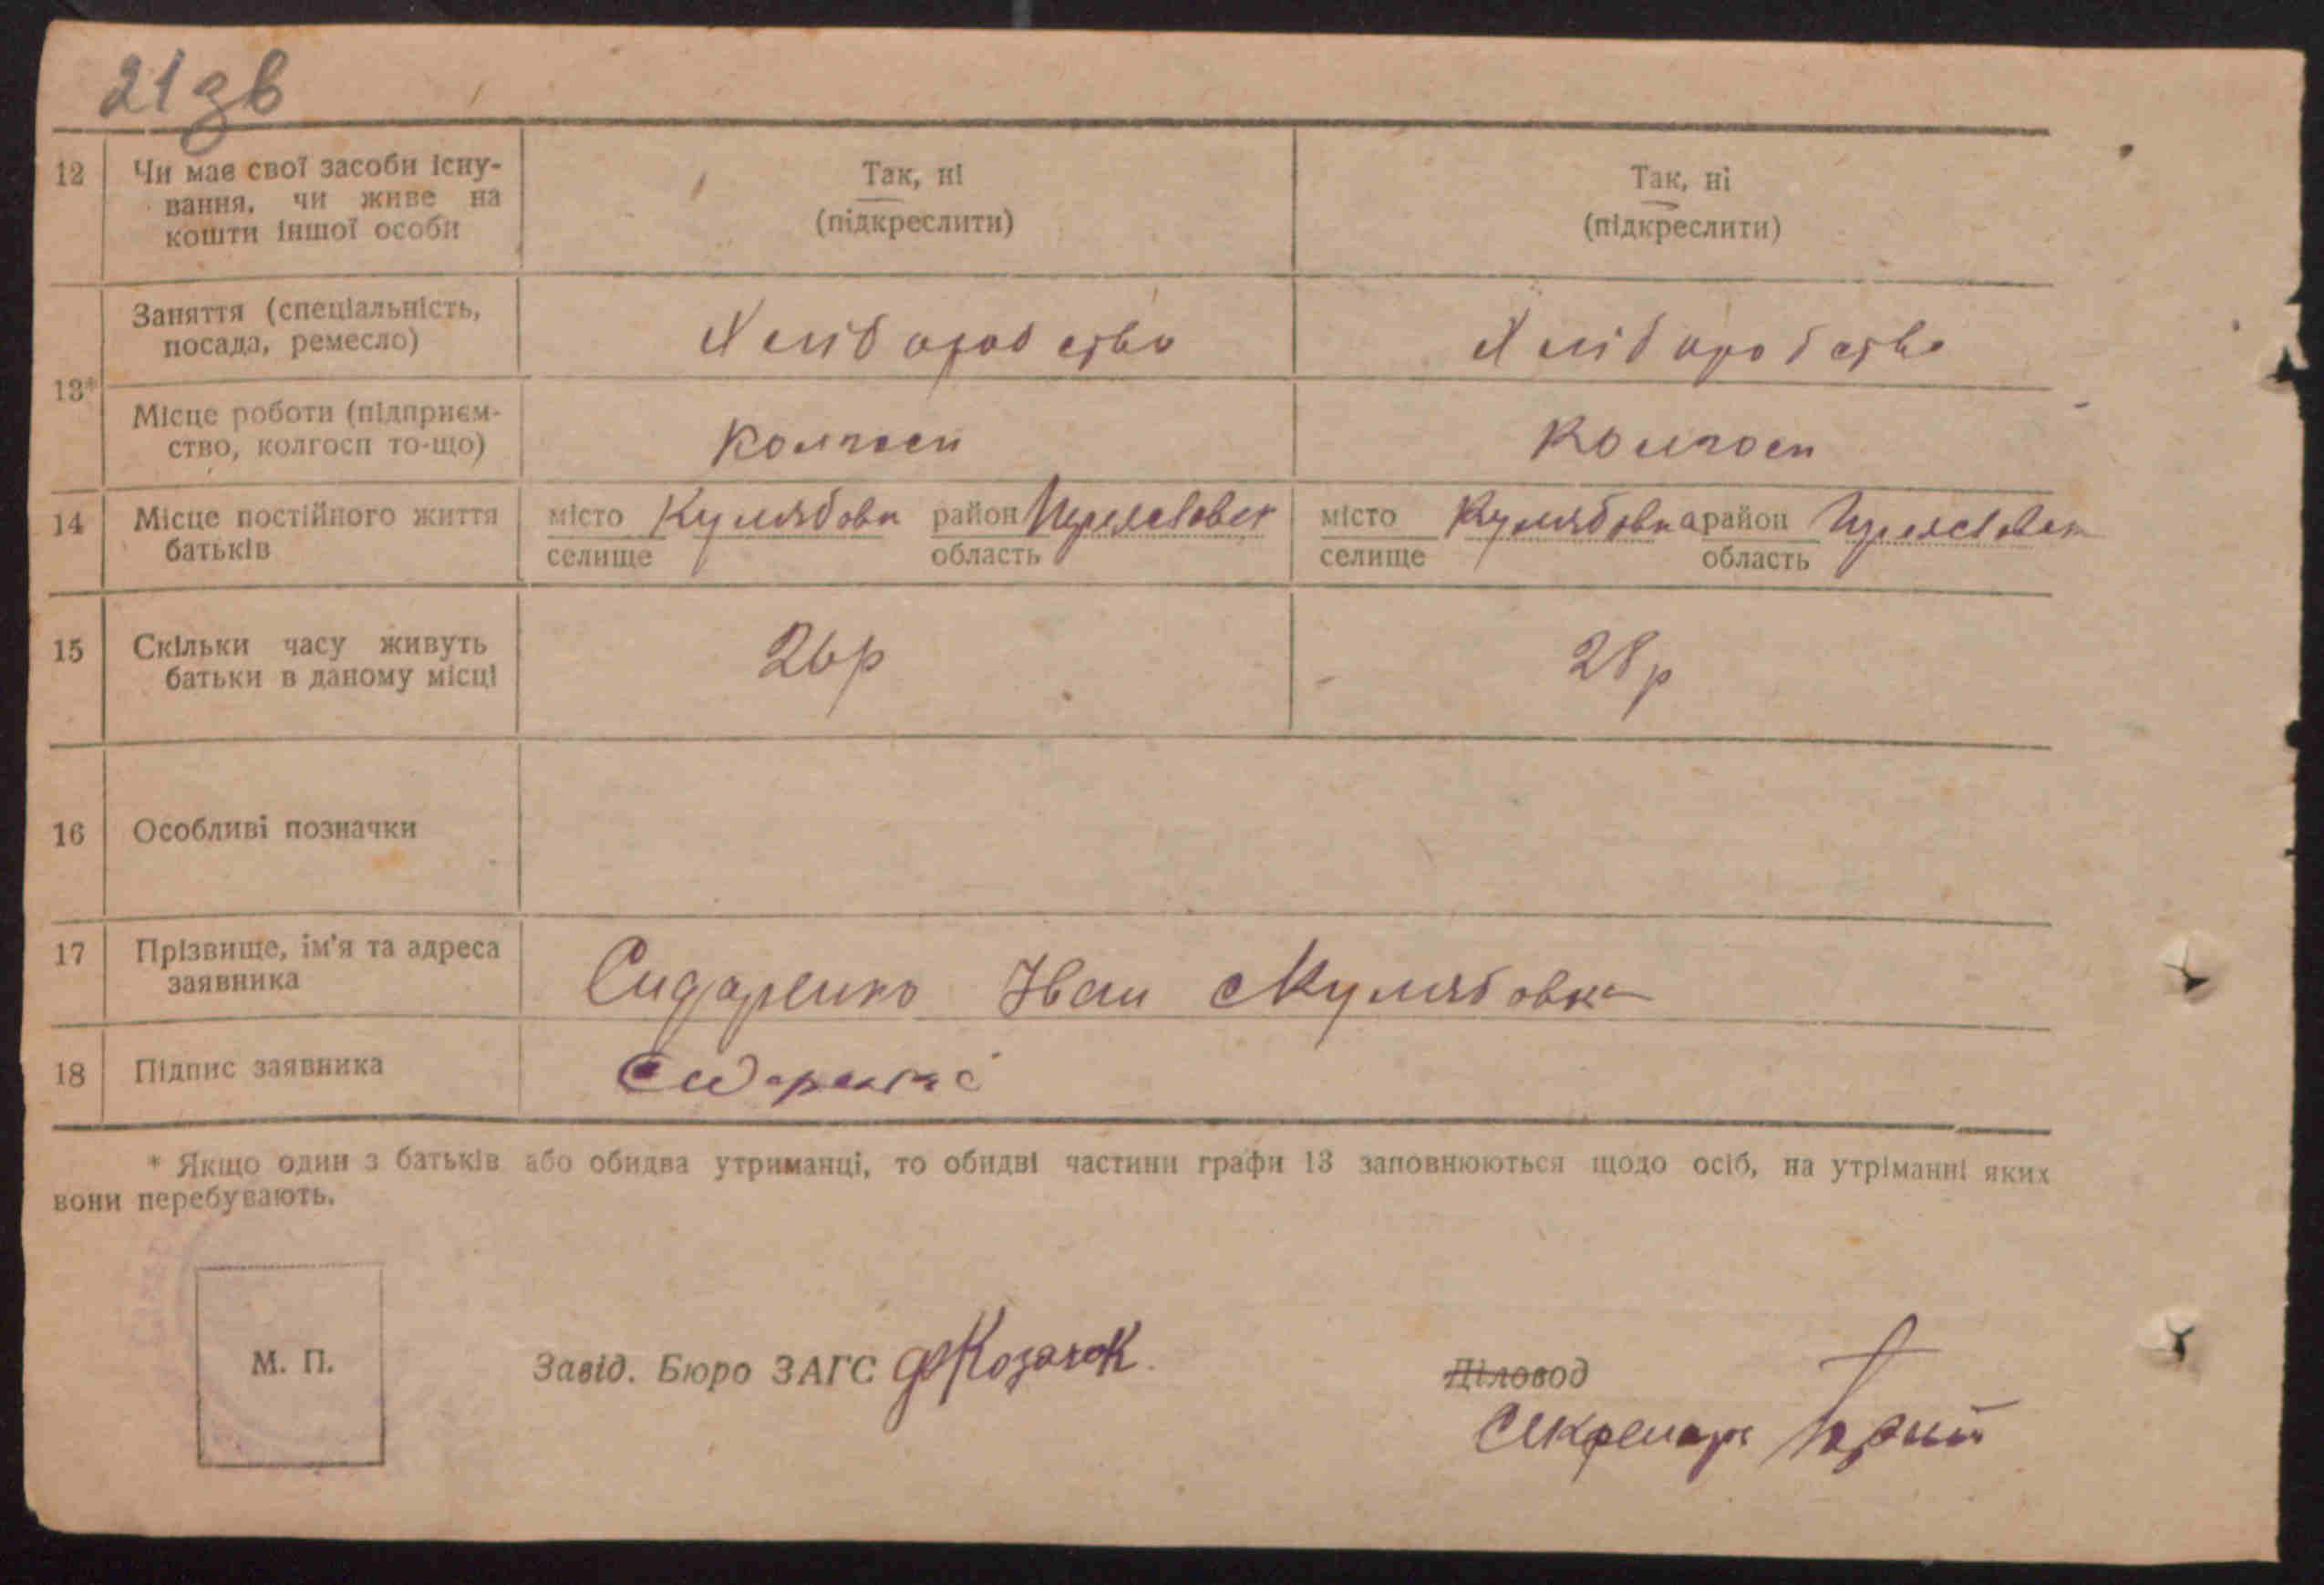 21зв
12 Чи має свої засоби існу-
вання, чи живе на
кошти іншої особи
Так, ні
(підкреслити)
Так, ні
(підкреслити)
13*
Заняття (спеціальність,
посада, ремесло)
Хліборобство
Хліборобство
Місце роботи (підприєм-
ство, колгосп то-що)
Колгосп
Колгосп
14 Місце постійного життя
батьків
місто Кулябовка район
селище область
місто Кулябовка район
селище область
15 Скільки часу живуть
батьки в даному місці
26р
28р
16 Особливі позначки
17 Прізвище, ім'я та адреса
заявника
Сидаренко Іван сКулябовка
18 Підпис заявника
* Якщо один з батьків або обидва утриманці, то обидві частини графи 13 заповнюються щодо осіб, на утріманні яких
вони перебувають.
М. П.
Завід. Бюро ЗАГС Козачок
Діловод
Секретарь